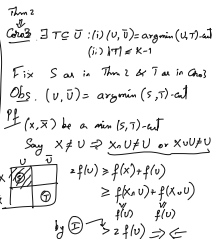 Thm 2
⇓
Coro3. ∃ T ⊆ Ū : (i) (U, Ū) = argmin (U,T)-cut
(ii) |T| ≤ K-1
Fix S as in Thm 2 & T as in Coro3
Obs. (U, Ū) = argmin (S,T)-cut
Pf (X, X̄) be a min (S,T)-cut
Say X ≠ U ⇒ X∩U ≠ U or X∪U ≠ U
U Ū
X S
X̄ T
2f(U) ≥ f(X) + f(U)
≥ f(X∩U) + f(X∪U)
f(U) f(U)
by Ⓘ > 2f(U) ⇒⇐